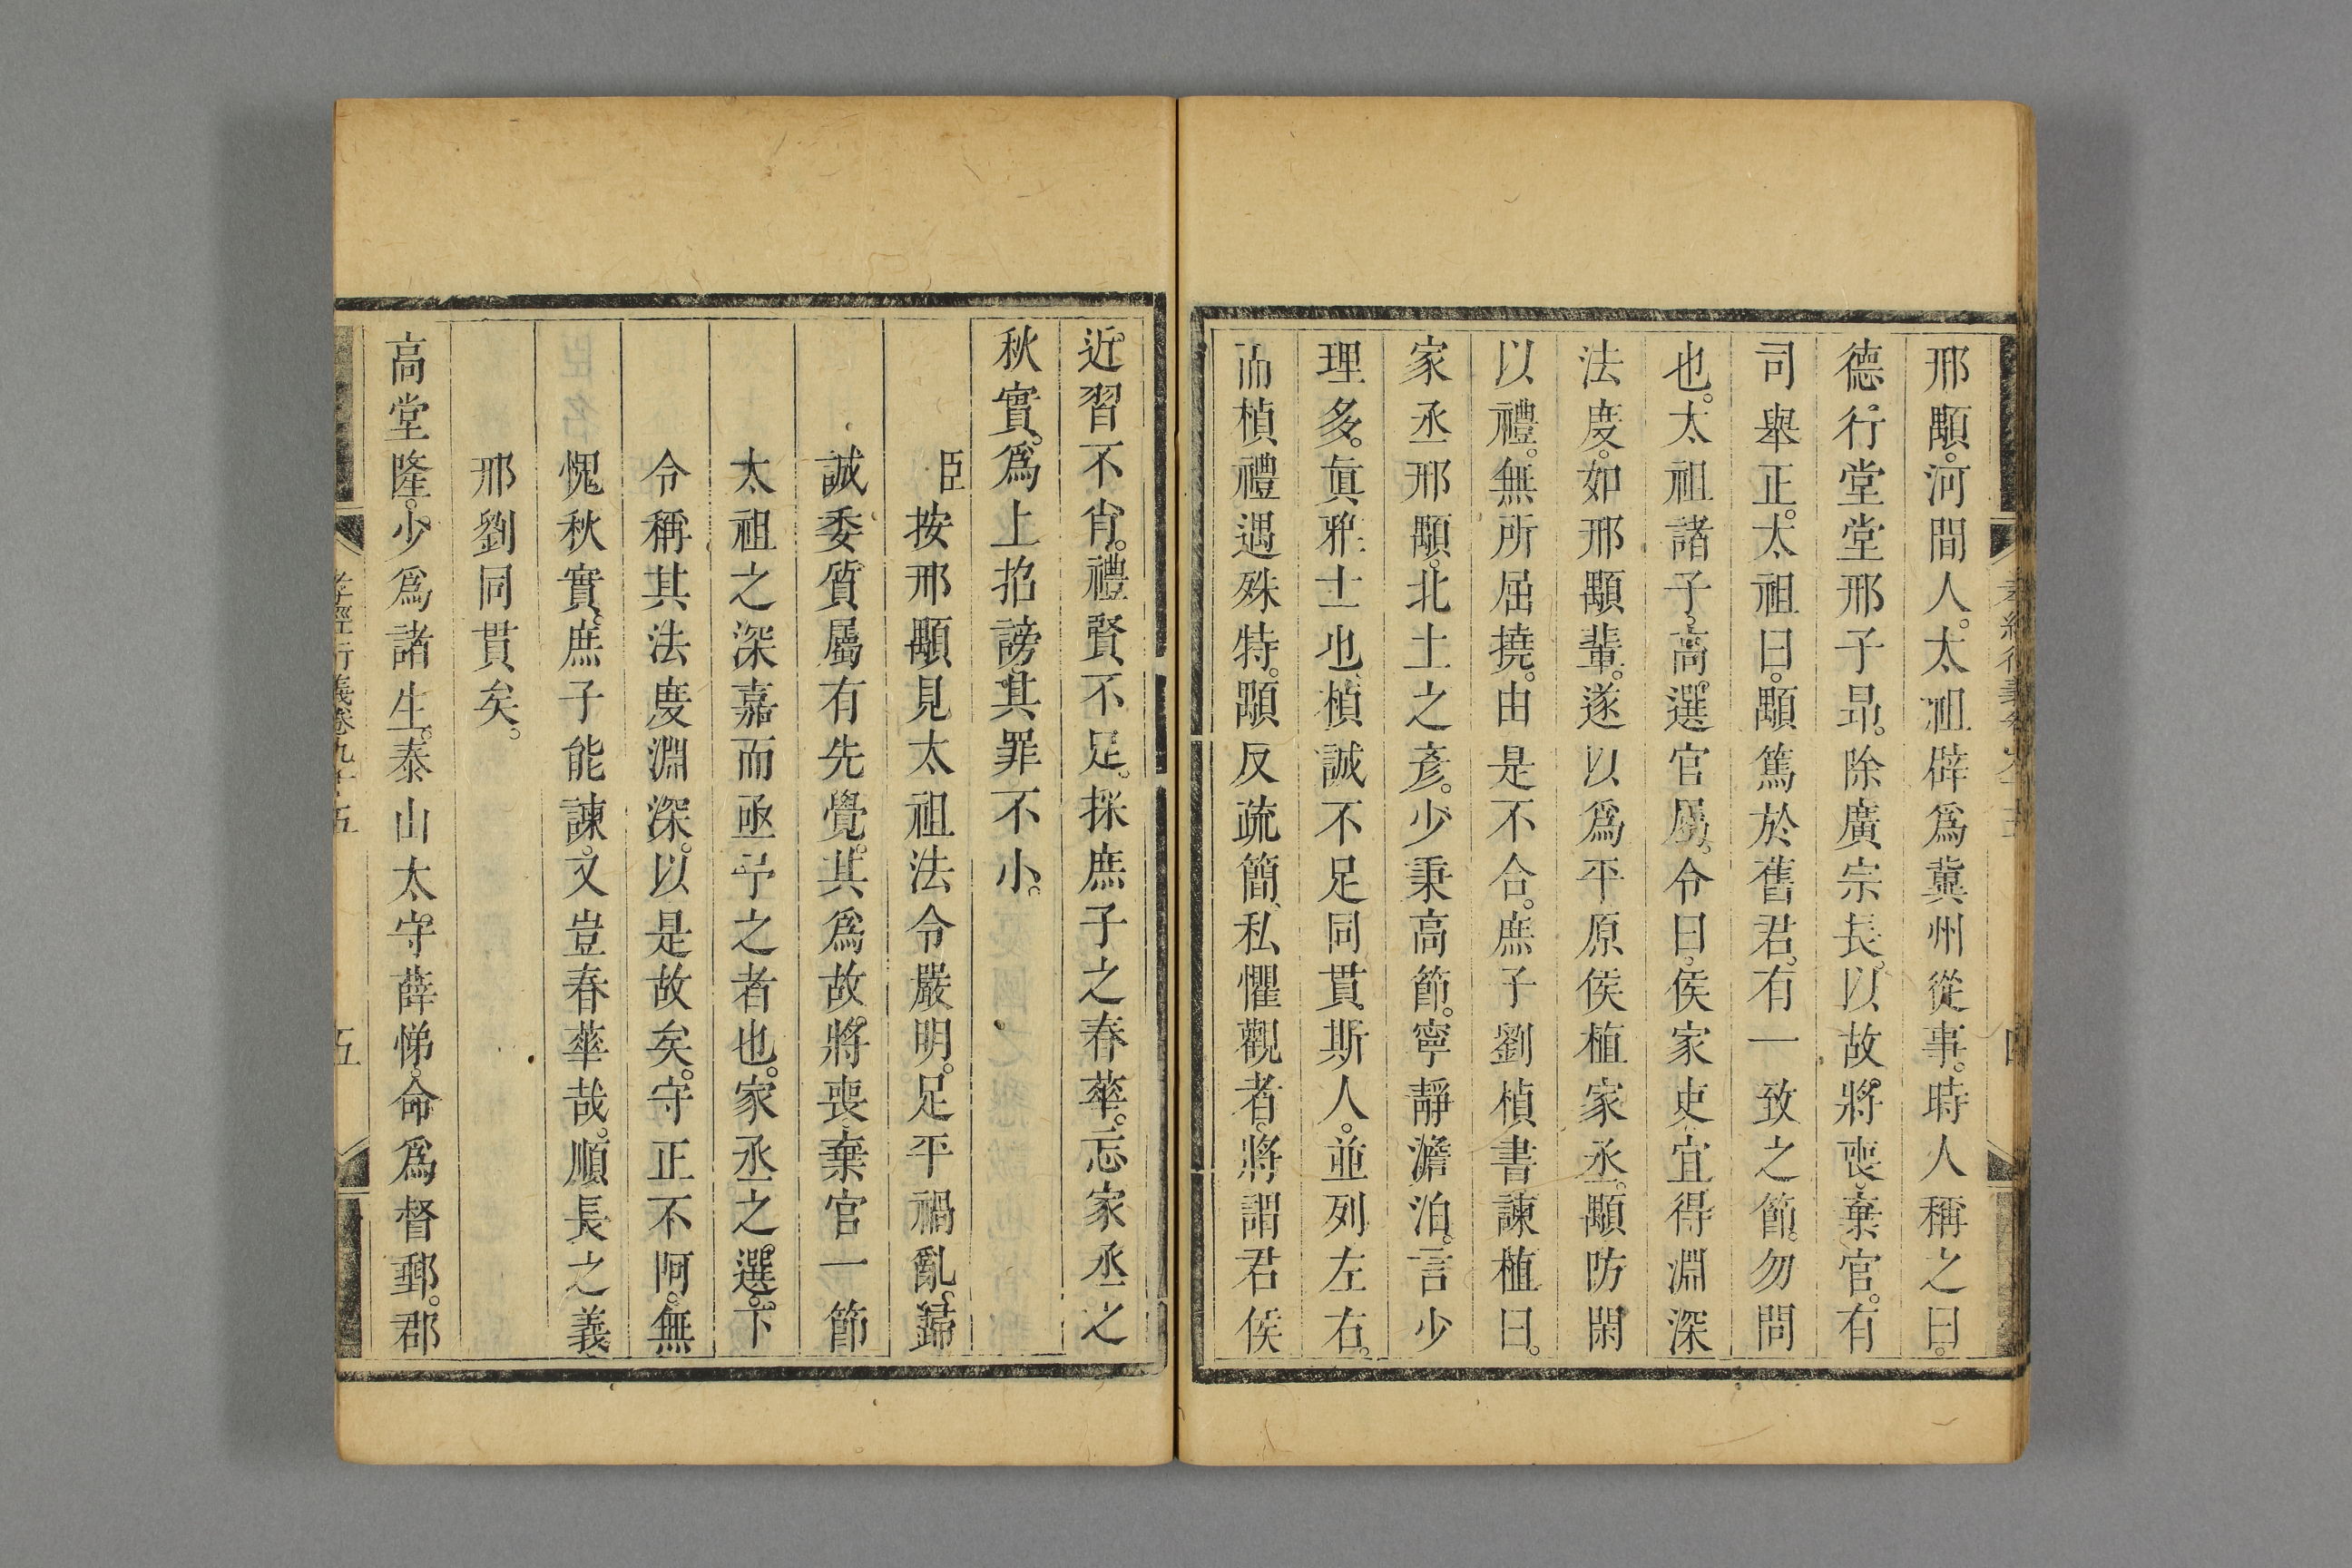 邢顒。河間人。太祖辟爲冀州從事。時人稱之曰。
德行堂堂邢子昂。除廣宗長。以故將喪。棄官。有
司舉正。太祖曰。顒篤於舊君。有一致之節。勿問
也。太祖諸子。高選官屬。令曰。侯家吏宜得淵深
法度。如邢顒輩。遂以爲平原侯植家丞。顒防閑
以禮。無所屈撓。由是不合。庶子劉楨書諫植曰。
家丞邢顒。北土之彥。少秉高節。寧靜澹泊。言少
理多。眞雅士也。楨誠不足同貫斯人。並列左右。
而楨禮遇殊特。顒反疏簡。私懼觀者。將謂君侯
近習不肖。禮賢不足。採庶子之春華。忘家丞之
秋實。爲上招謗。其罪不小。
臣按邢顒見太祖法令嚴明。足平禍亂。歸
誠委質。屬有先覺。其爲故將喪棄官一節
太祖之深嘉而亟予之者也。家丞之選。下
令稱其法度淵深。以是故矣。守正不阿。無
愧秋實。庶子能諫。又豈春華哉。順長之義
邢劉同貫矣。
高堂隆。少爲諸生。泰山太守薛悌。命爲督郵。郡
孝經衍義卷九十五
五